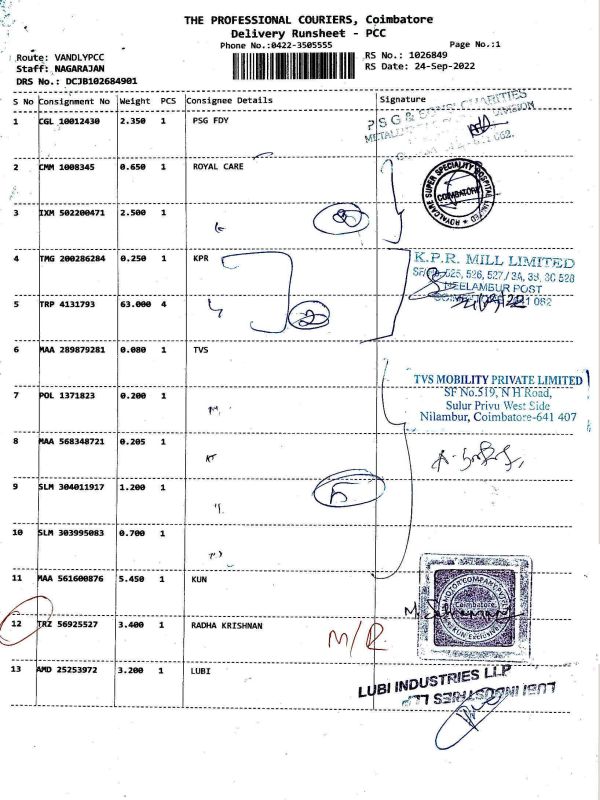 THE PROFESSIONAL COURIERS, Coimbatore
Delivery Runsheet - PCC
Phone No.:0422-3505555 Page No.:1
Route: VANDLYPCC RS No.: 1026849
Staff: NAGARAJAN RS Date: 24-Sep-2022
DRS No.: DCJB102684901
S No Consignment No Weight PCS Consignee Details Signature
1 CGL 10012430 2.350 1 PSG FDY
PSG & SONS' CHARITIES
2 CMM 1008345 0.650 1 ROYAL CARE
ROYALCARE SUPER SPECIALITY HOSPITAL LIMITED
COIMBATORE
3 IXM 502200471 2.500 1
4 TMG 200286284 0.250 1 KPR
K.P.R. MILL LIMITED
NEELAMBUR POST
5 TRP 4131793 63.000 4
2
6 MAA 289879281 0.080 1 TVS
TVS MOBILITY PRIVATE LIMITED
SF No.519, N H Road,
Sulur Privu West Side
Nilambur, Coimbatore-641 407
7 POL 1371823 0.200 1
8 MAA 568348721 0.205 1
9 SLM 304011917 1.200 1
5
10 SLM 303995083 0.700 1
11 MAA 561600876 5.450 1 KUN
Coimbatore
12 TRZ 56925527 3.400 1 RADHA KRISHNAN
M/R
13 AMD 25253972 3.200 1 LUBI
LUBI INDUSTRIES LLP
LUBI INDUSTRIES LLP